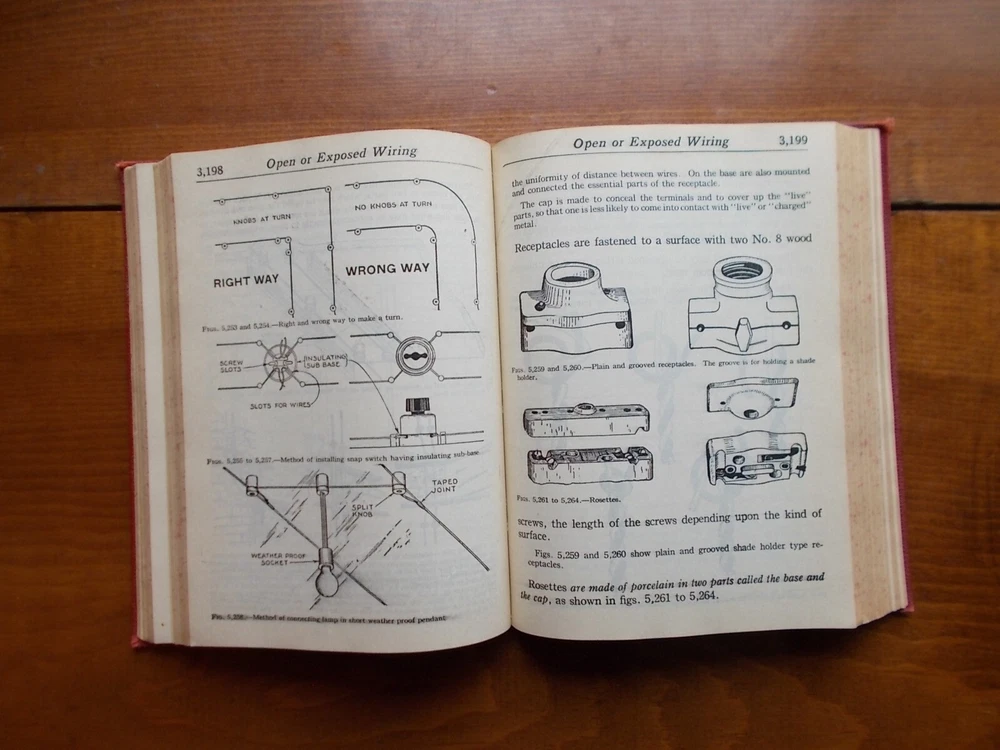 3,198
Open or Exposed Wiring
KNOBS AT TURN
NO KNOBS AT TURN
RIGHT WAY
WRONG WAY
Figs. 5,253 and 5,254.—Right and wrong way to make a turn.
SCREW
SLOTS
INSULATING
SUB BASE
SLOTS FOR WIRES
Figs. 5,255 to 5,257.—Method of installing snap switch having insulating sub-base
TAPED
JOINT
SPLIT
KNOB
WEATHER PROOF
SOCKET
Fig. 5,258.—Method of connecting lamp in short weather proof pendant.
Open or Exposed Wiring
3,199
the uniformity of distance between wires. On the base are also mounted
and connected the essential parts of the receptacle.
The cap is made to conceal the terminals and to cover up the "live"
parts, so that one is less likely to come into contact with "live" or "charged"
metal.
Receptacles are fastened to a surface with two No. 8 wood
Figs. 5,259 and 5,260.—Plain and grooved receptacles. The groove is for holding a shade
holder.
Figs. 5,261 to 5,264.—Rosettes.
screws, the length of the screws depending upon the kind of
surface.
Figs. 5,259 and 5,260 show plain and grooved shade holder type re-
ceptacles.
Rosettes are made of porcelain in two parts called the base and
the cap, as shown in figs. 5,261 to 5,264.